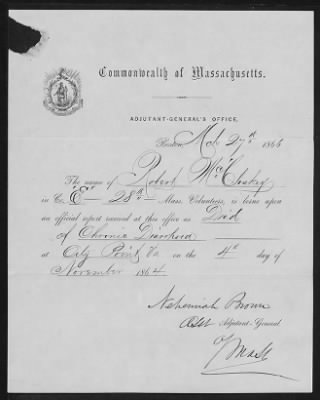 Commonwealth of Massachusetts.
ADJUTANT-GENERAL'S OFFICE,
Boston, Feb 27th 1866
The name of Robert McCloskey
in Co. "E" - 28th - Mass. Volunteers, is borne upon
an official report received at this office as Died
of Chronic Diarrhoea
at City Point, Va on the 4th day of
November 1864
Nehemiah Brown
Asst Adjutant-General.
of Mass